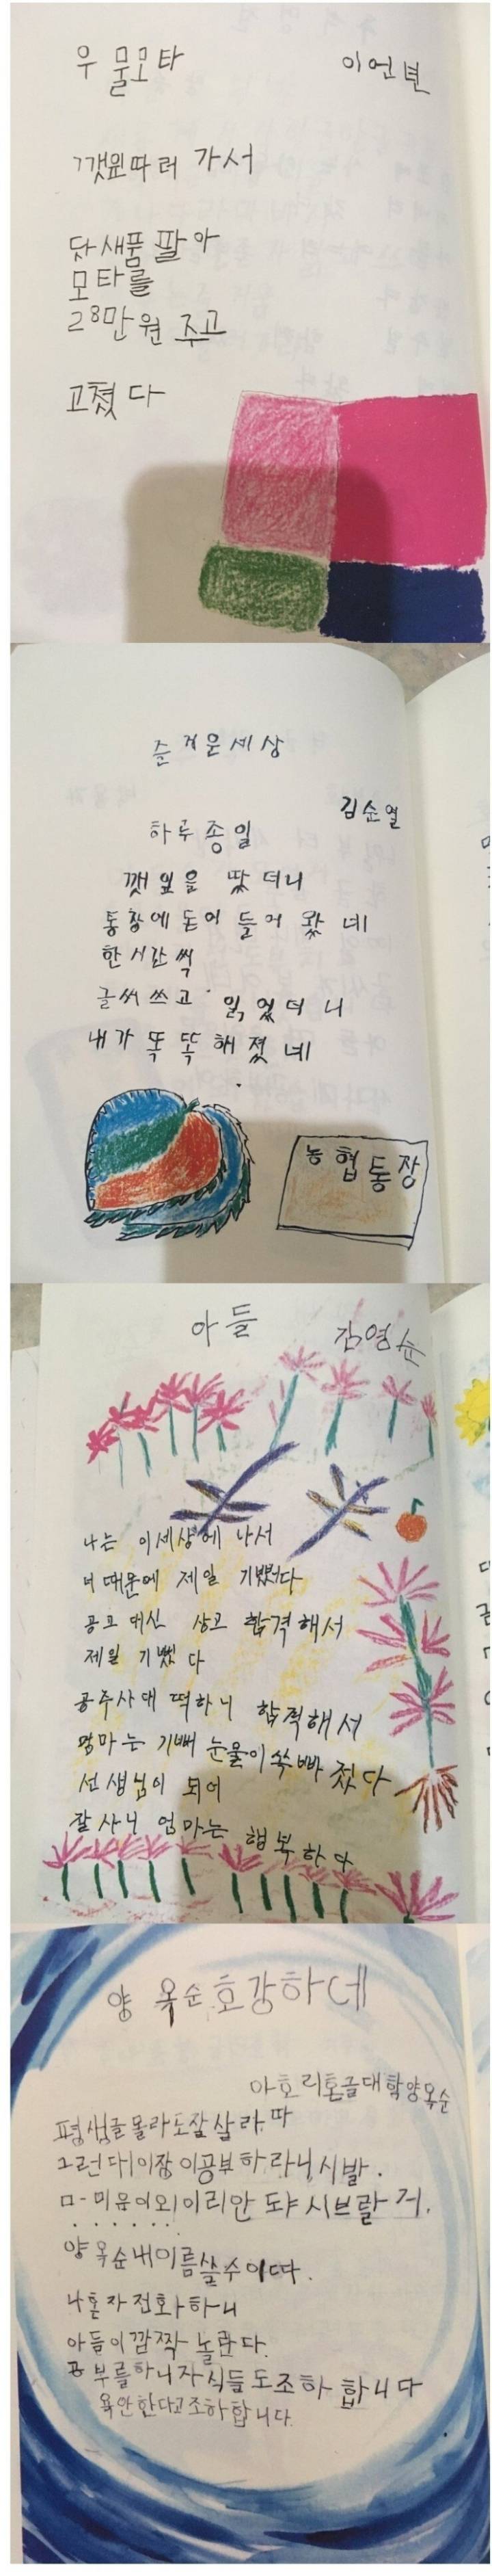 우물모타
이언년
깻잎따러 가서
닷새품 팔아
모타를
28만원 주고
고쳤다
즌거운세상
김순열
하루종일
깻잎을 땄더니
통장에 돈이 들어 왔네
한시간씩
글씨쓰고 읽었더니
내가 똑똑해졌네
농협통장
아들
김영순
나는 이세상에 나서
너때문에 제일 기뻤다
공고대신 상고 합격해서
제일 기뻤다
공주사대 떡하니 합격해서
엄마는 기뻐 눈물이쏙빠졌다
선생님이 되어
잘사니 엄마는 행복하다
양옥순호강하네
아호리혼글대학양옥순
평생글몰라도잘살라따
그런대이장이공부하라니시발.
ㅁ-미음이외이리안 도냐 시브랄거.
양옥순내이름쓸수이따.
나혼자전화하니
아들이깜짝놀란다.
공부를하니자식들도조하합니다
욕안한다고조하합니다.